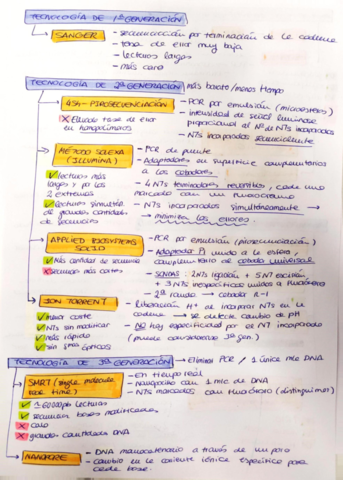 TECNOLOGÍA DE 1ª GENERACIÓN
SANGER
- secuenciación por terminación de la cadena
- tasa de error muy baja
- lecturas largas
- más caro
TECNOLOGÍA DE 2ª GENERACIÓN más barato/menos tiempo
454 - PIROSECUENCIACIÓN
x Elevada tasa de error en homopolímeros
- PCR por emulsión (microesferas)
- intensidad de señal luminosa proporcional al Nº de NTs incorporados
- NTs incorporados secuencialmente
MÉTODO SOLEXA (ILLUMINA)
✓ lecturas más largas y por los 2 extremos
✓ lectura simultánea de grandes cantidades de
- PCR de puente
- Adaptadores en superficie complementarios a los cebadores
- 4 NTs terminadores reversibles, cada uno marcado con un fluorocromo
- NTs incorporados simultáneamente →
→ minimiza los errores.
APPLIED BIOSYSTEMS SOLID
✓ Más cantidad de
x lecturas más cortas
- PCR por emulsión (pirosecuenciación)
- Adaptador P1 unido a la esfera, complementario al cebador universal
- SONDAS: 2NTs ligación + 5 NT escisión
+ 3 NTs inespecíficos unidos a fluoróforo
- 2ª ronda → cebador n-1
ION TORRENT
✓ menor coste
✓ NTs sin modificar
✓ más rápido
✓ sin sist. ópticos
- liberación H+ de incorporar NTs en la cadena → se detecta cambio de pH
- NO hay especificidad por el NT incorporado
(puede considerarse 3ª gen.)
TECNOLOGÍA DE 3ª GENERACIÓN → Eliminar PCR / 1 única mlc DNA
SMRT (single molecule real time)
✓ lecturas
✓ secuenciar bases modificadas
x caro
x grandes cantidades DNA
- En tiempo real
- nanopocillo con 1 mlc de DNA
- NTs marcados con fluoróforo (distinguimos)
NANOPORE
- DNA monocatenario a través de un poro
- cambio en la corriente iónica específico para cada base.